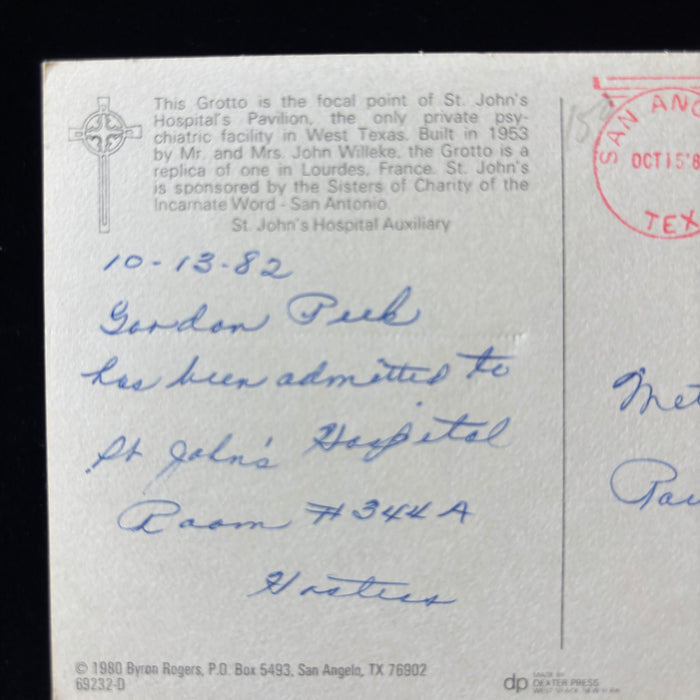 This Grotto is the focal point of St. John's
Hospital's Pavilion, the only private psy-
chiatric facility in West Texas. Built in 1953
by Mr. and Mrs. John Willeke, the Grotto is a
replica of one in Lourdes, France. St. John's
is sponsored by the Sisters of Charity of the
Incarnate Word - San Antonio.
St. John's Hospital Auxiliary
10-13-82
Gordon Peek
has been admitted to
St John's Hospital
Room #344A
Hostess
© 1980 Byron Rogers, P.O. Box 5493, San Angelo, TX 76902
69232-D
SAN ANG
OCT 15 '8
TEX
Met
dp
MADE BY
DEXTER PRESS